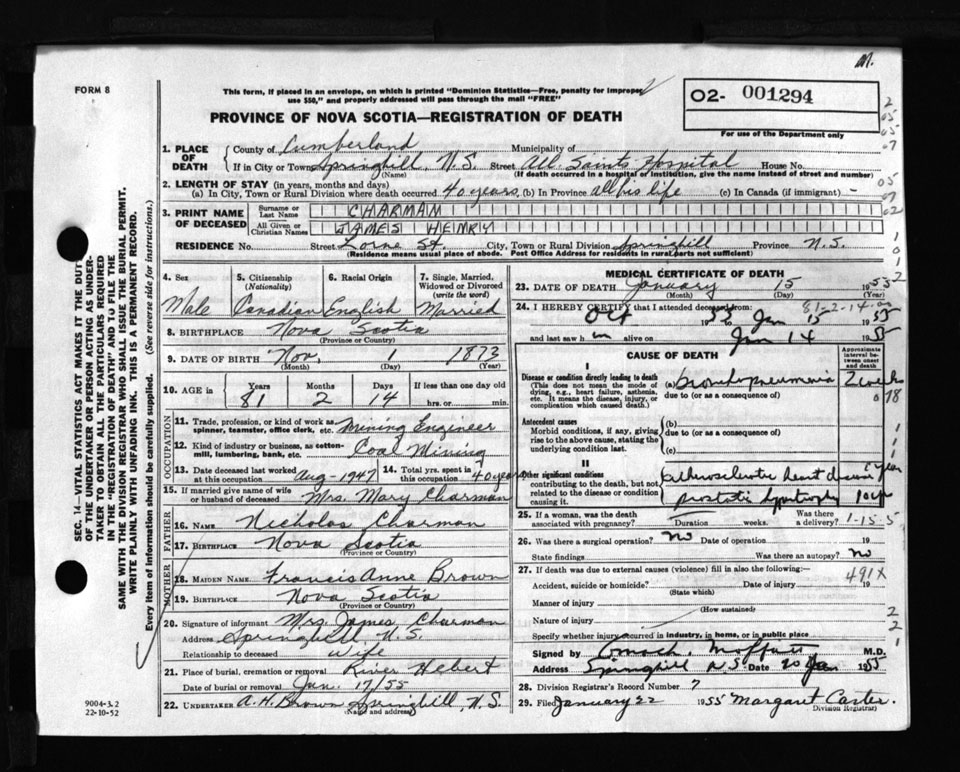 m.
FORM 8
This form, if placed in an envelope, on which is printed "Dominion Statistics—Free, penalty for improper
use $50," and properly addressed will pass through the mail "FREE"
O2- 001294
For use of the Department only
PROVINCE OF NOVA SCOTIA—REGISTRATION OF DEATH
1. PLACE OF DEATH
County of Cumberland Municipality of
If in City or Town Springhill, N.S. Street All Saints Hospital House No.
(Name) (If death occurred in a hospital or institution, give the name instead of street and number)
2. LENGTH OF STAY (in years, months and days)
(a) In City, Town or Rural Division where death occurred 40 years (b) In Province all his life (c) In Canada (if immigrant) -
3. PRINT NAME OF DECEASED
Surname or Last Name CHARMAN
All Given or Christian Names JAMES HENRY
RESIDENCE No. Street Lorne St. City, Town or Rural Division Springhill Province N.S.
(Residence means usual place of abode. Post Office Address for residents in rural parts not sufficient)
4. Sex Male
5. Citizenship (Nationality) Canadian
6. Racial Origin English
7. Single, Married, Widowed or Divorced (write the word) Married
8. BIRTHPLACE Nova Scotia
(Province or Country)
9. DATE OF BIRTH Nov. 1 1873
(Month) (Day) (Year)
10. AGE in Years Months Days If less than one day old
81 2 14 hrs. or min.
OCCUPATION
11. Trade, profession, or kind of work as spinner, teamster, office clerk, etc. Mining Engineer
12. Kind of industry or business, as cotton-mill, lumbering, bank, etc. Coal Mining
13. Date deceased last worked at this occupation Aug - 1947
14. Total yrs. spent in this occupation 40 years
15. If married give name of wife or husband of deceased Mrs. Mary Charman
FATHER
16. NAME Nicholas Charman
17. BIRTHPLACE Nova Scotia
(Province or Country)
MOTHER
18. MAIDEN NAME Francis Anne Brown
19. BIRTHPLACE Nova Scotia
(Province or Country)
20. Signature of informant Mrs. James Charman
Address Springhill N.S.
Relationship to deceased Wife
21. Place of burial, cremation or removal River Hebert
Date of burial or removal Jan. 17/55
22. UNDERTAKER A. H. Brown Springhill, N.S.
(Name and address)
MEDICAL CERTIFICATE OF DEATH
23. DATE OF DEATH January 15 1955
(Month) (Day) (Year)
81-2-14
24. I HEREBY CERTIFY that I attended deceased from:
Oct 19 Jan 15 1955
and last saw h im alive on Jan 14 1955
CAUSE OF DEATH
Approximate interval between onset and death
I
Disease or condition directly leading to death
(This does not mean the mode of dying, e.g., heart failure, asthenia, etc. It means the disease, injury, or complication which caused death.)
(a) bronchopneumonia 2 weeks
due to (or as a consequence of)
Antecedent causes
Morbid conditions, if any, giving rise to the above cause, stating the underlying condition last.
(b)
due to (or as a consequence of)
(c)
II
Other significant conditions
contributing to the death, but not related to the disease or condition causing it.
arteriosclerotic heart disease
prostatic hypertrophy
25. If a woman, was the death associated with pregnancy? Duration weeks. Was there a delivery? 1-15-5
26. Was there a surgical operation? No Date of operation 19
State findings Was there an autopsy? No
27. If death was due to external causes (violence) fill in also the following:— 491X
Accident, suicide or homicide? Date of injury 19
(State which)
Manner of injury
(How sustained)
Nature of injury
Specify whether injury occurred in industry, in home, or in public place
Signed by Moffatt M.D.
Address Springhill N.S. Date 20 Jan 1955
28. Division Registrar's Record Number 7
29. Filed January 22 1955 Margaret Carter.
Division Registrar)
SEC. 14—VITAL STATISTICS ACT MAKES IT THE DUTY
OF THE UNDERTAKER OR PERSON ACTING AS UNDER-
TAKER TO OBTAIN ALL THE PARTICULARS REQUIRED
IN THE "REGISTRATION OF DEATH" AND TO FILE THE
SAME WITH THE DIVISION REGISTRAR WHO SHALL ISSUE THE BURIAL PERMIT.
WRITE PLAINLY WITH UNFADING INK. THIS IS A PERMANENT RECORD.
Every item of information should be carefully supplied. (See reverse side for instructions.)
9004-3.2
22-10-52